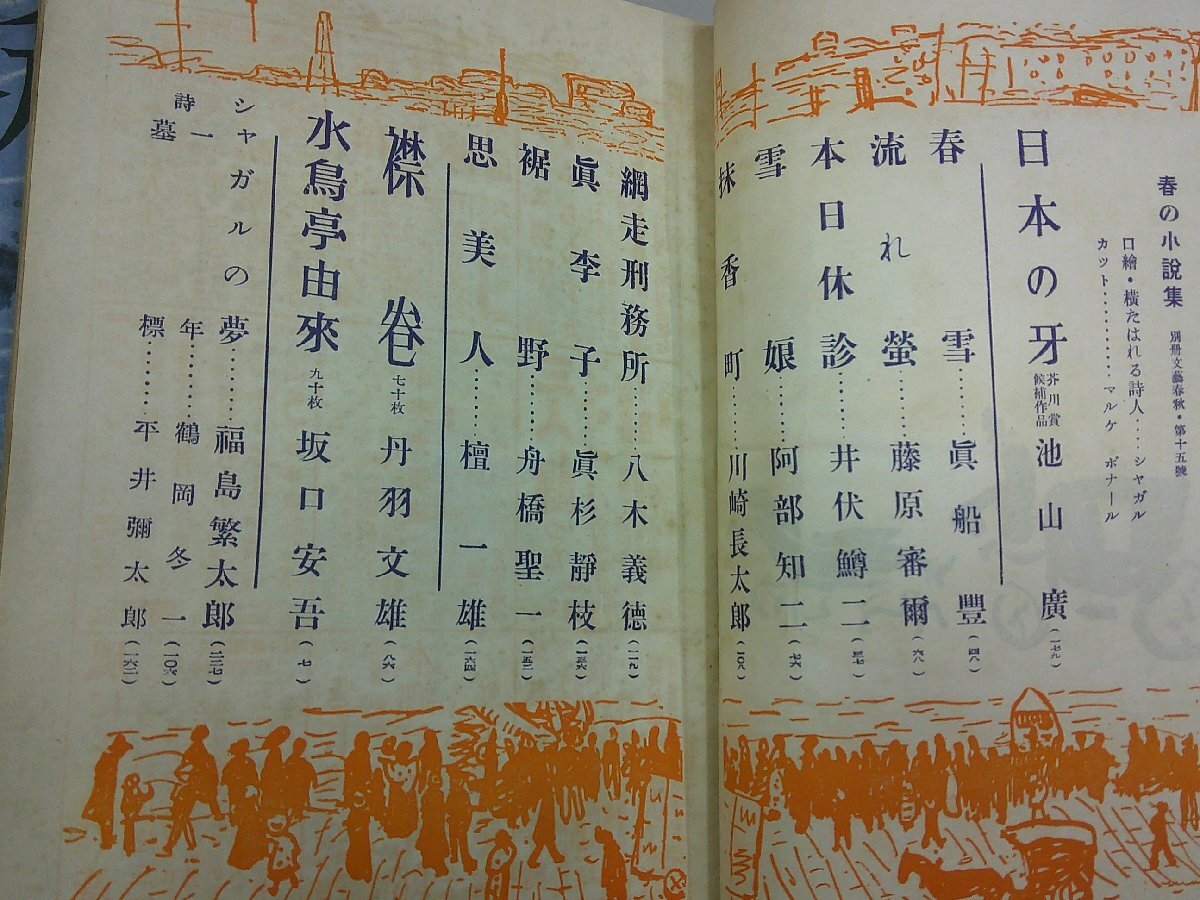 春の小說集 別册文藝春秋・第十五號
口繪・橫たはれる詩人‥‥シャガル
カット‥‥‥‥‥‥マルケ ボナール
日本の牙 芥川賞候補作品 池山廣(一七九)
春雪‥‥‥‥眞船豐(四八)
流れ螢‥‥‥‥藤原審爾(六八)
本日休診‥‥‥‥井伏鱒二(三七)
雪娘‥‥‥‥阿部知二(七六)
抹香町‥‥‥‥川崎長太郎(一〇八)
網走刑務所‥‥‥‥八木義德(一一九)
眞李子‥‥‥‥眞杉靜枝(一三六)
裾野‥‥‥‥舟橋聖一(一五二)
思美人‥‥‥‥檀一雄(一六四)
襟卷 七十枚 丹羽文雄(八六)
水鳥亭由來 九十枚 坂口安吾(七)
シャガルの夢‥‥‥‥福島繁太郎(二三七)
詩
一年‥‥‥‥鶴岡冬一(一〇六)
墓標‥‥‥‥平井彌太郎(一六二)